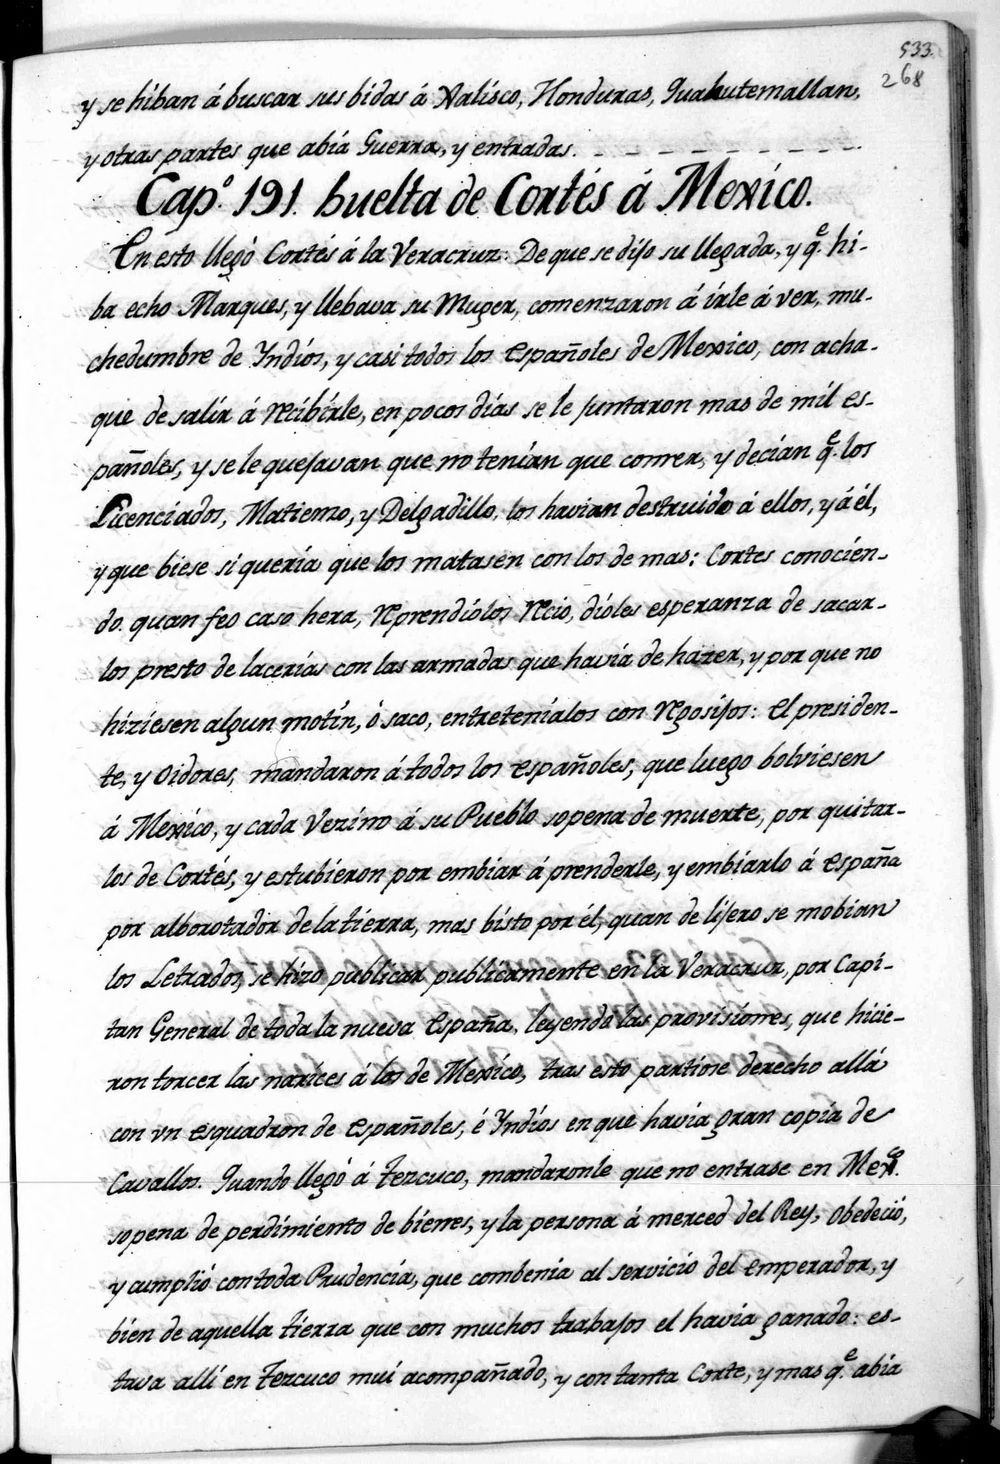 533.
268
y se hiban á buscar sus bidas á Xalisco, Honduras, Quahutemallan,
y otras partes que abia Guerra, y entradas.
Capº 191. buelta de Cortés á Mexico.
En esto llegó Cortés á la Veracruz: De que se dijo su llegada, y q.e hi-
ba echo Marques, y llebava su Muger, comenzaron á írle á ver, mu-
chedumbre de Yndios, y casi todos los españoles de Mexico, con acha-
que de salir á recibirle, en pocos dias se le juntaron mas de mil es-
pañoles, y se le quejavan que no tenian que comer, y decian q.e los
Licenciados, Matienzo, y Delgadillo, los havian destruido á ellos, y á él,
y que biese si queria que los matasen con los de mas: Cortes conocien-
do quan feo caso hera, reprendiólos recio, dioles esperanza de sacar-
los presto de lacerias con las armadas que havia de hazer, y por que no
hiziesen algun motin, ò saco, entretenialos con regosijos: el presiden-
te, y oidores, mandaron á todos los españoles, que luego bolviesen
á Mexico, y cada Vezino á su Pueblo sopena de muerte, por quitar-
los de Cortés, y estubieron por embiar á prenderle, y embiarlo á españa
por alborotador de la tierra, mas bisto por él, quan de lijero se mobian
los Letrados, se hizo publicar publicamente en la Veracruz, por Capi-
tan General de toda la nueva españa, leyendo las provisiones, que hicie-
ron torcer las narices á los de Mexico, tras esto partióse derecho allá
con vn esquadron de españoles, é Yndios en que havia gran copia de
Cavallos. Quando llegó á Tezcuco, mandaronle que no entrase en Mexº.
sopena de perdimiento de bienes, y la persona á merced del Rey, obedeció,
y cumplió con toda Prudencia, que combenia al servicio del emperador, y
bien de aquella tierra que con muchos trabajos el havia ganado: es-
tava allí en Tezcuco mui acompañado, y con tanta Corte, y mas q.e abia